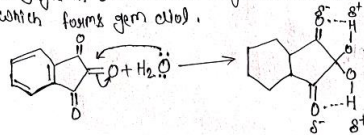 which forms gem diol.
O
O + H₂Ö
O
δ⁻ δ⁺
O---H
O
O
O---H
δ⁻ δ⁺